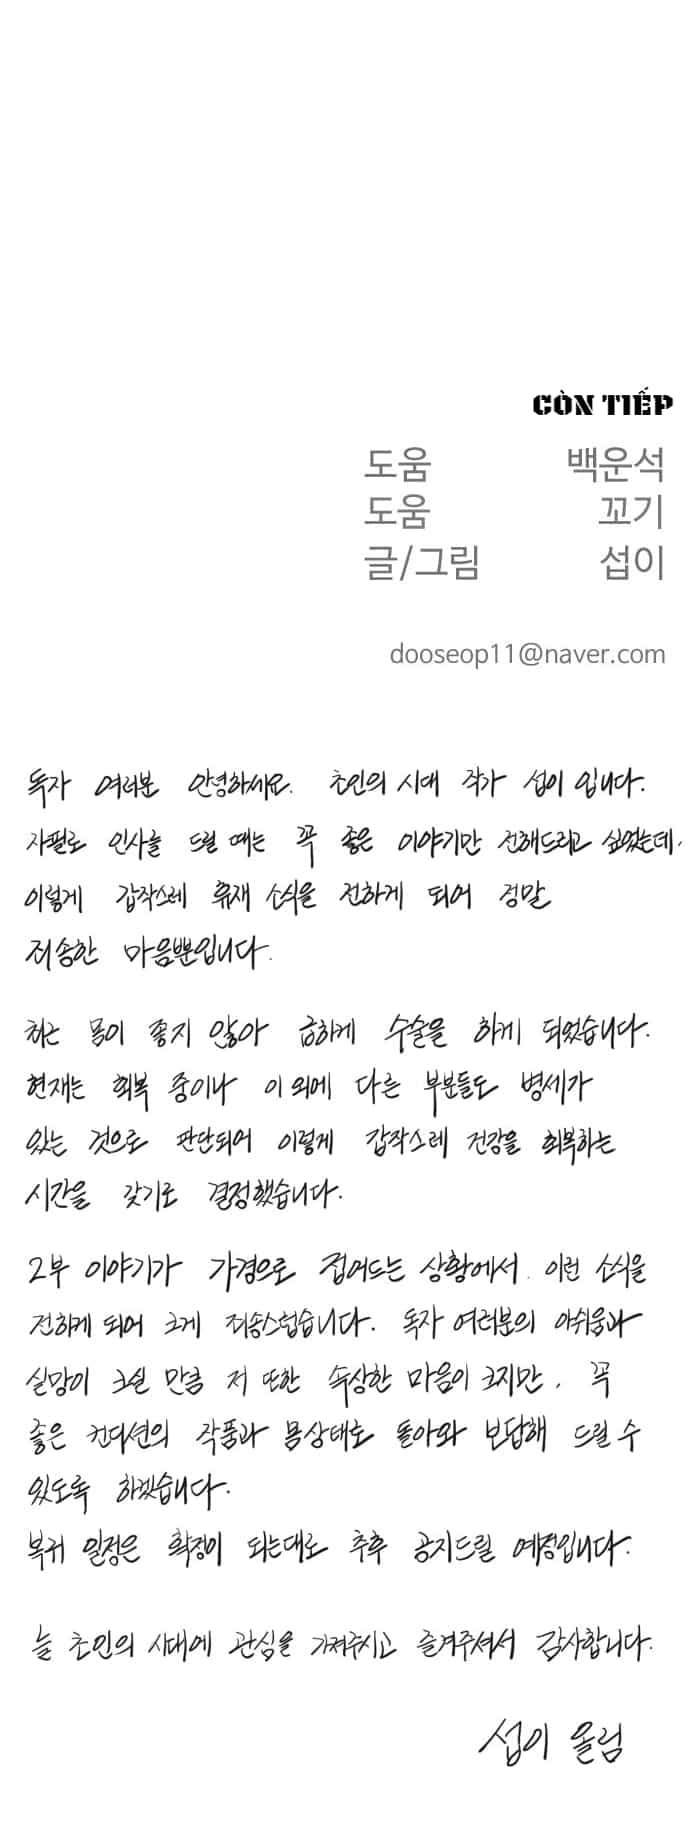 CÒN TIẾP
도움 백운석
도움 꼬기
글/그림 섭이
dooseop11@naver.com
독자 여러분 안녕하세요. 초인의 시대 작가 섭이 입니다.
자필로 인사를 드릴 때는 꼭 좋은 이야기만 전해드리고 싶었는데,
이렇게 갑작스레 휴재 소식을 전하게 되어 정말
죄송한 마음뿐입니다.
최근 몸이 좋지 않아 급하게 수술을 하게 되었습니다.
현재는 회복 중이나 이 외에 다른 부분들도 병세가
있는 것으로 판단되어 이렇게 갑작스레 건강을 회복하는
시간을 갖기로 결정했습니다.
2부 이야기가 가경으로 접어드는 상황에서. 이런 소식을
전하게 되어 크게 죄송스럽습니다. 독자 여러분의 아쉬움과
실망이 크실 만큼 저 또한 속상한 마음이 크지만, 꼭
좋은 컨디션의 작품과 몸상태로 돌아와 보답해 드릴 수
있도록 하겠습니다.
복귀 일정은 확정이 되는대로 추후 공지드릴 예정입니다.
늘 초인의 시대에 관심을 가져주시고 즐겨주셔서 감사합니다.
섭이 올림